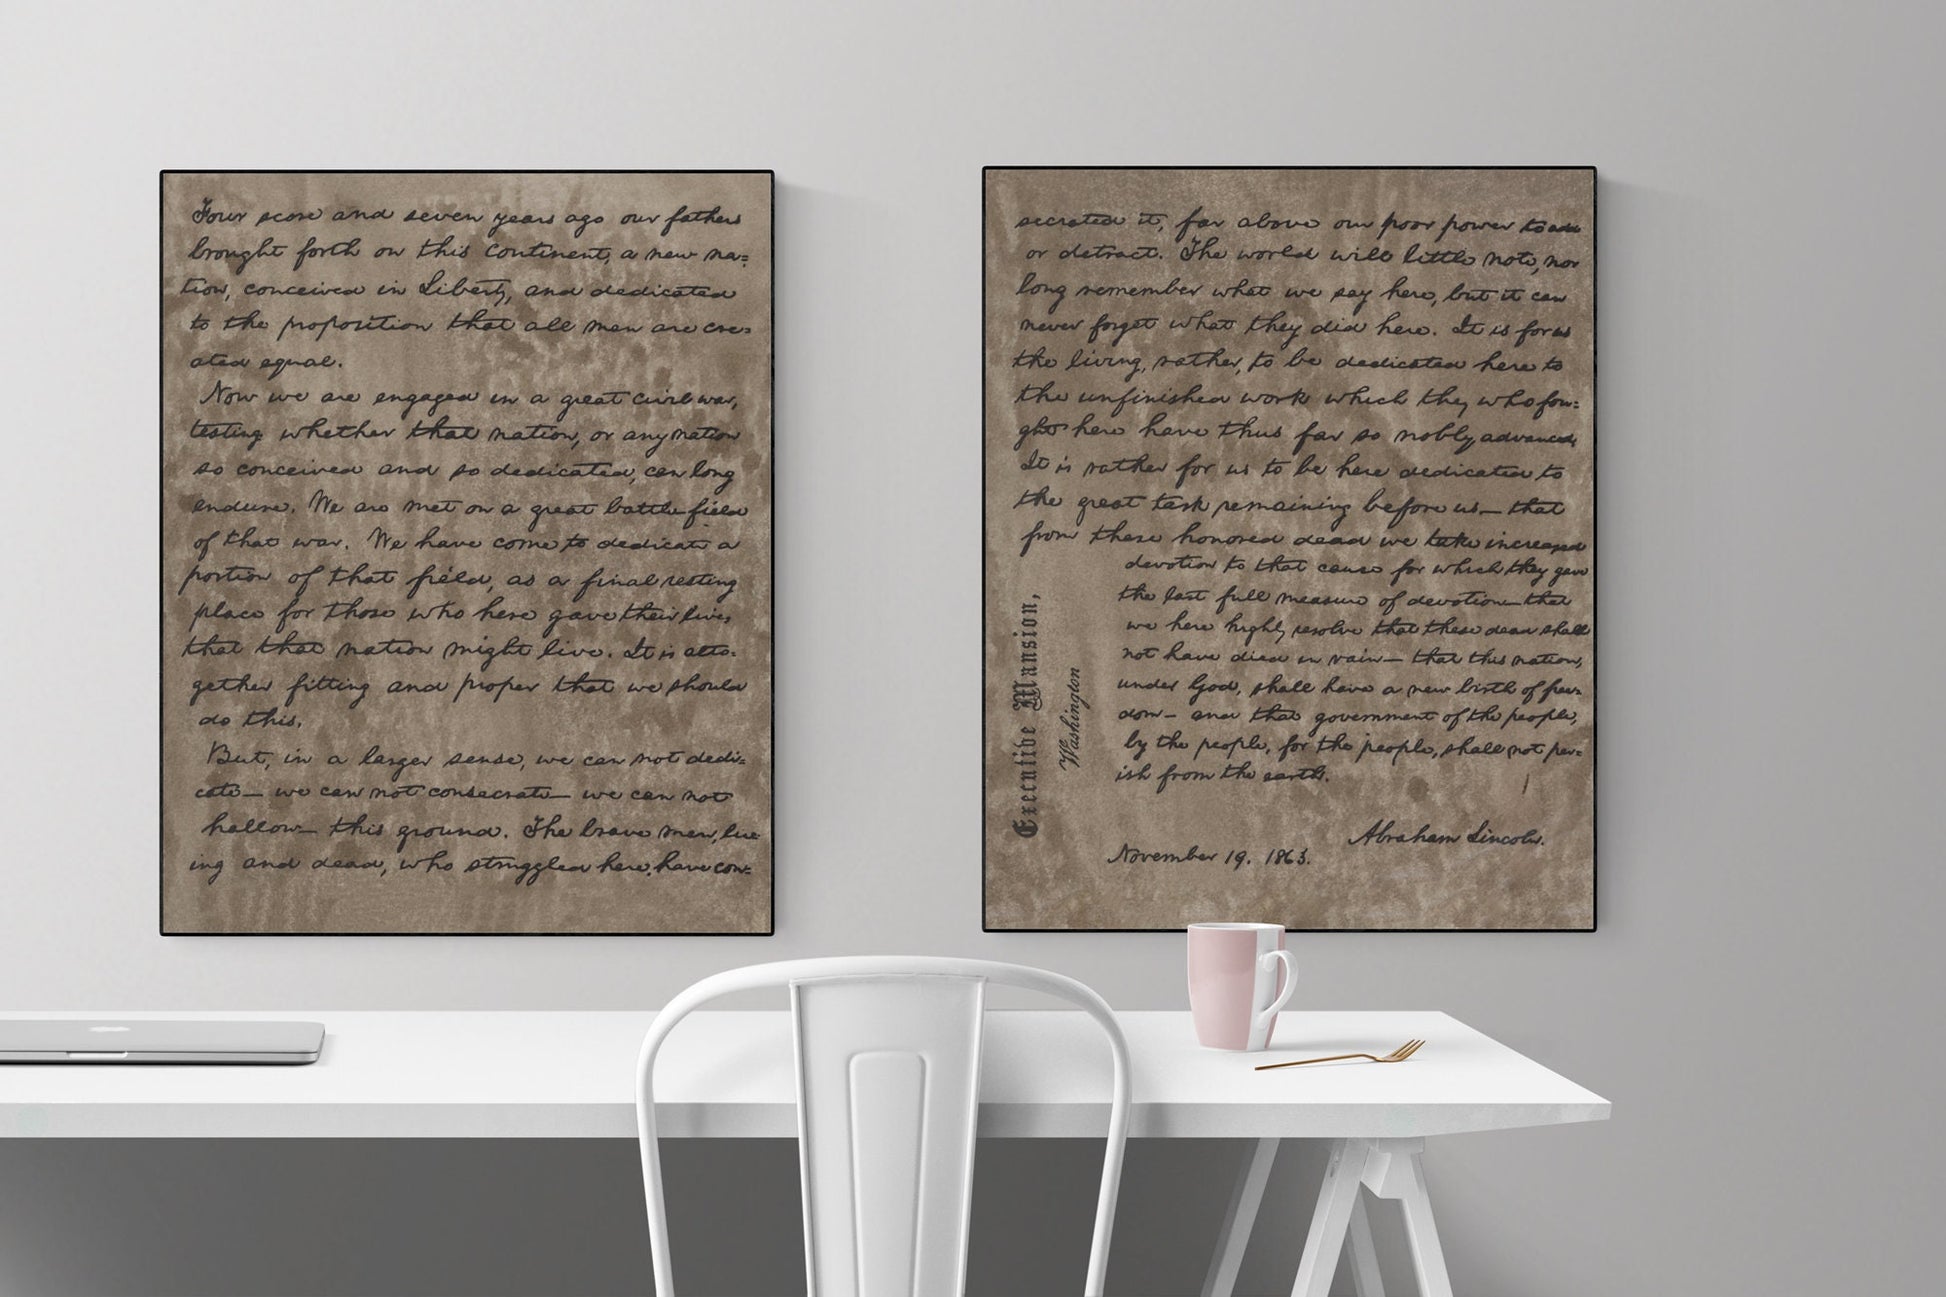 Four score and seven years ago our fathers
brought forth on this continent, a new na=
tion, conceived in Liberty, and dedicated
to the proposition that all men are cre=
ated equal.
Now we are engaged in a great civil war,
testing whether that nation, or any nation
so conceived and so dedicated, can long
endure. We are met on a great battle-field
of that war. We have come to dedicate a
portion of that field, as a final resting
place for those who here gave their lives
that that nation might live. It is alto=
gether fitting and proper that we should
do this.
But, in a larger sense, we can not dedi=
cate— we can not consecrate— we can not
hallow— this ground. The brave men, liv=
ing and dead, who struggled here, have con=
secrated it, far above our poor power to add
or detract. The world will little note, nor
long remember what we say here, but it can
never forget what they did here. It is for us
the living, rather, to be dedicated here to
the unfinished work which they who fou=
ght here have thus far so nobly advanced.
It is rather for us to be here dedicated to
the great task remaining before us— that
from these honored dead we take increased
devotion to that cause for which they gave
the last full measure of devotion— that
we here highly resolve that these dead shall
not have died in vain— that this nation,
under God, shall have a new birth of free=
dom— and that government of the people,
by the people, for the people, shall not per=
ish from the earth.
Abraham Lincoln.
November 19. 1863.
Executive Mansion,
Washington